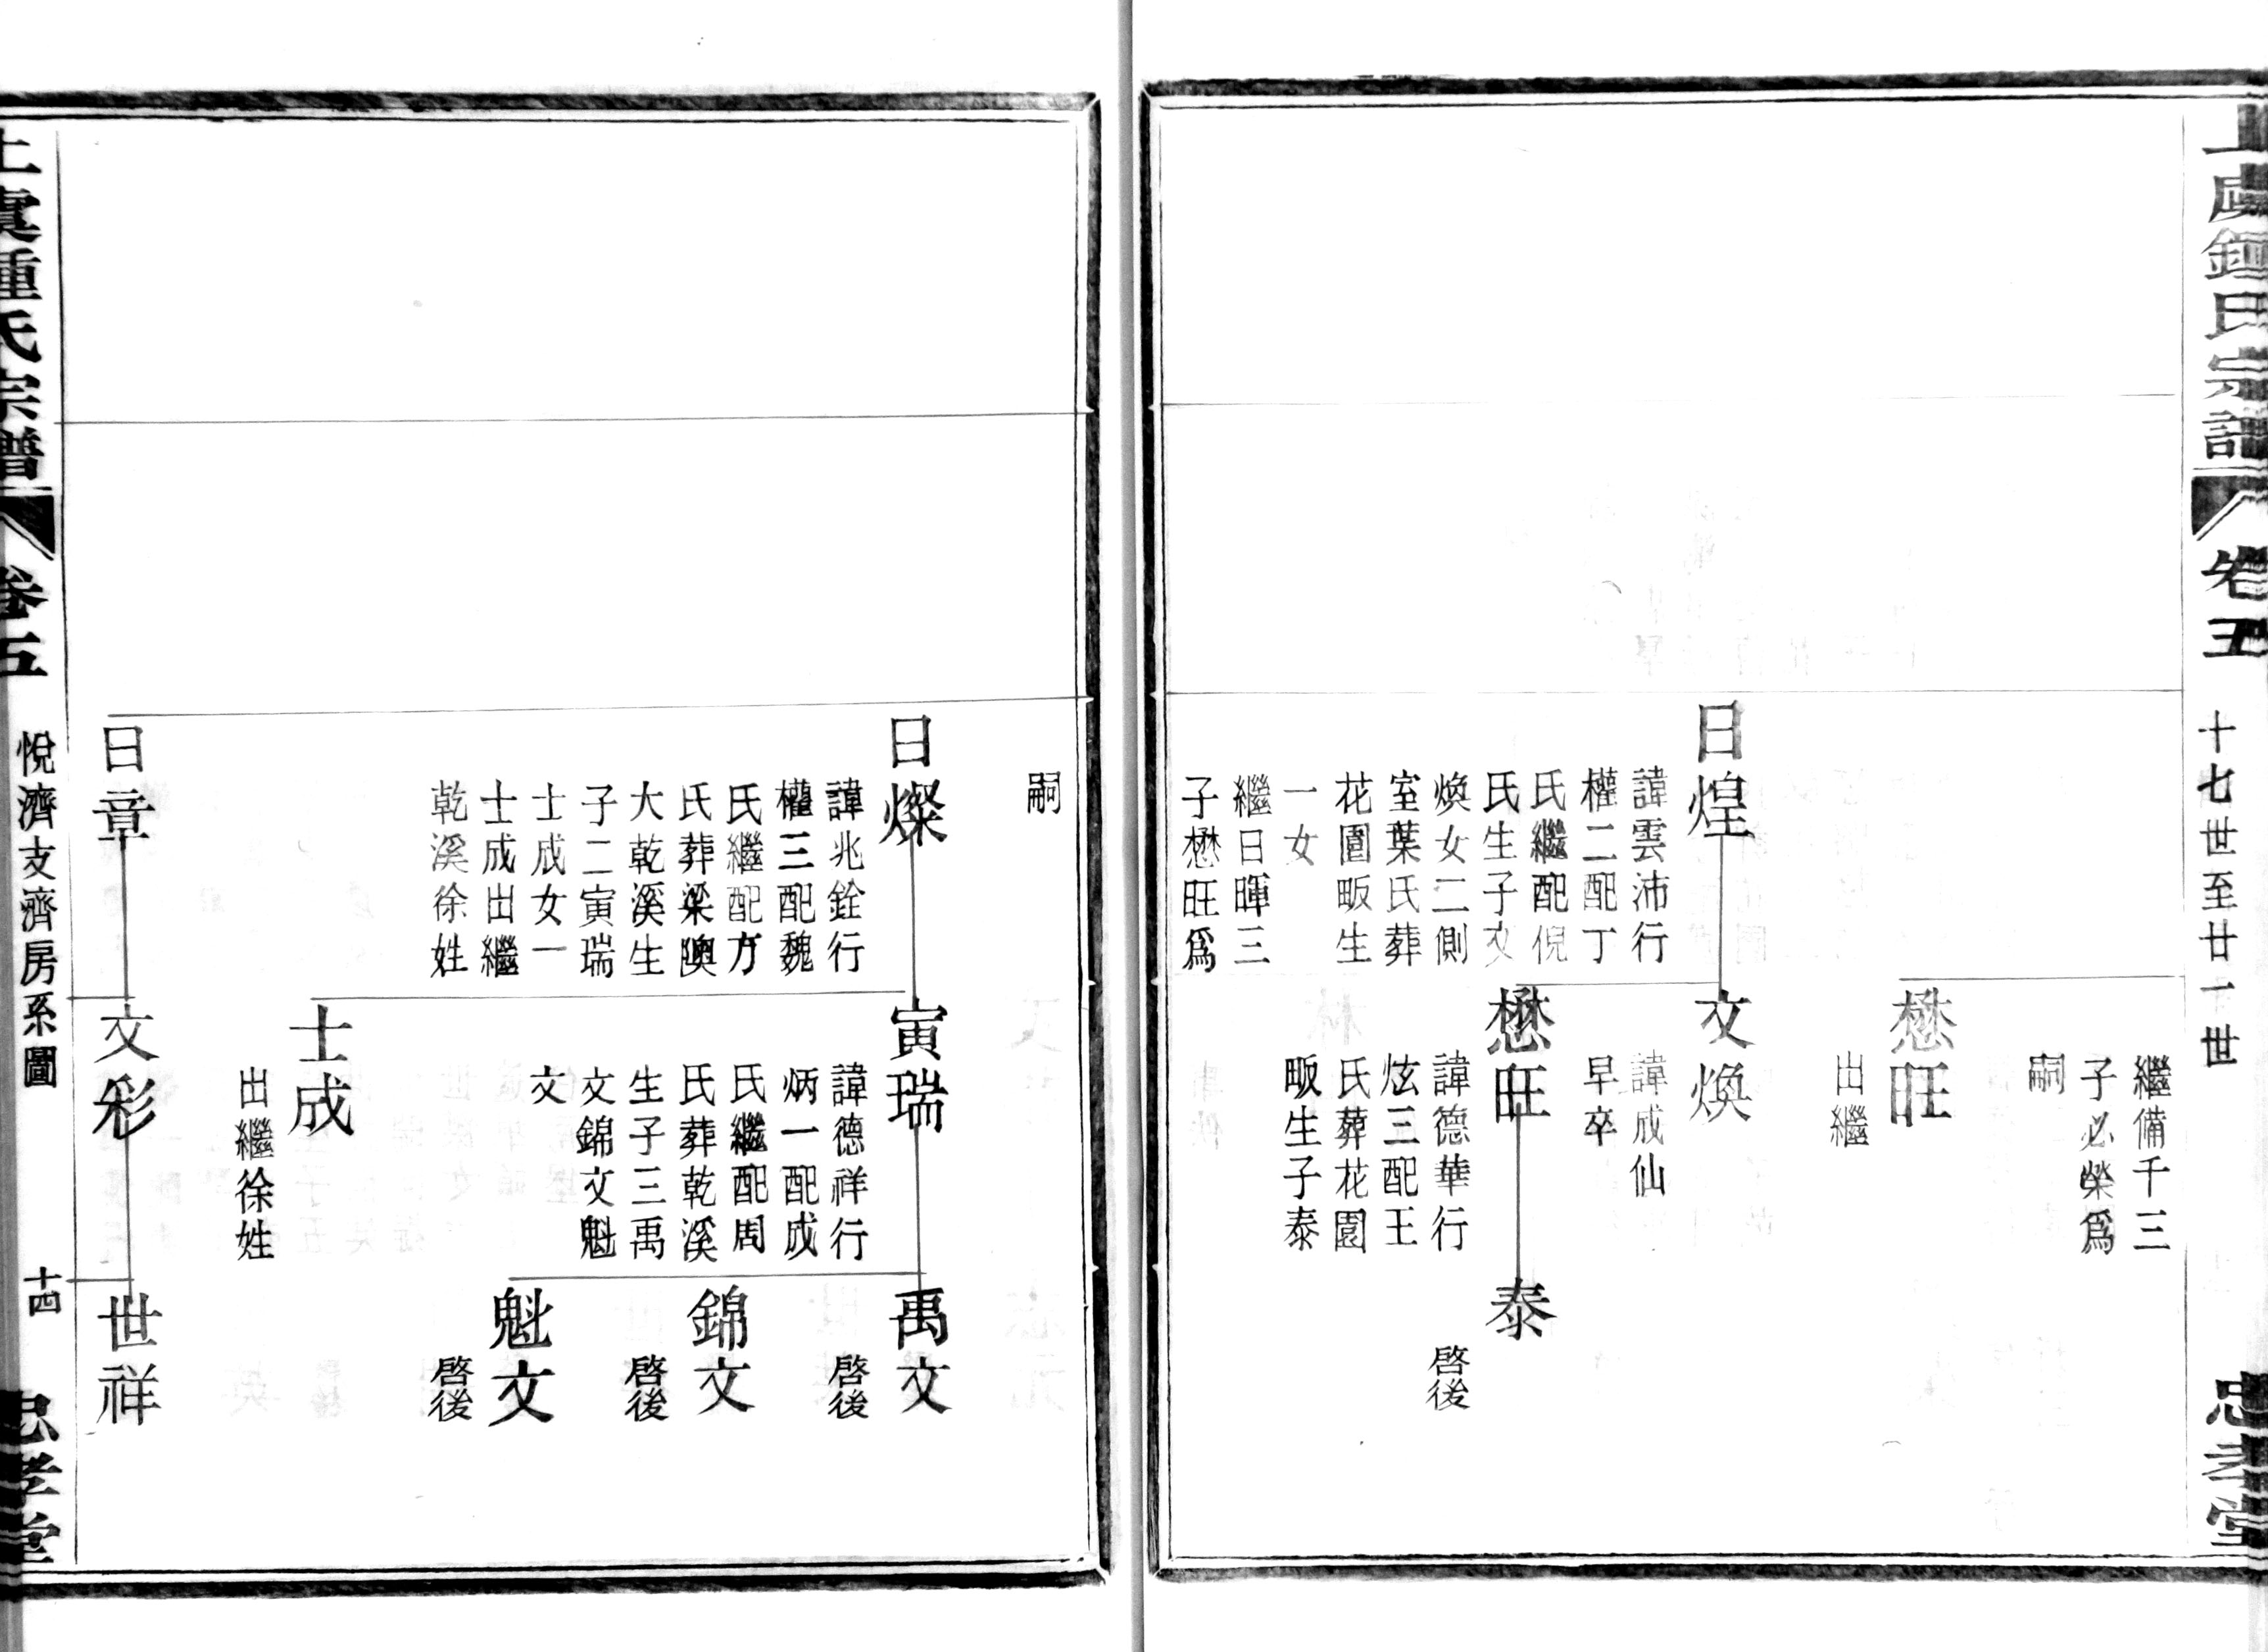 上虞鍾氏宗譜
卷五
十七世至廿一世
忠孝堂
繼備千三
子必榮爲
嗣
懋旺
出繼
日煌
諱雲沛行
權二配丁
氏繼配倪
氏生子文
煥女二側
室葉氏葬
花園畈生
一女
繼日暉三
子懋旺爲
文煥
諱成仙
早卒
懋旺
諱德華行
炫三配王
氏葬花園
畈生子泰
泰
啓後
嗣
日燦
諱兆銓行
權三配魏
氏繼配方
氏葬梁隩
大乾溪生
子二寅瑞
士成女一
士成出繼
乾溪徐姓
寅瑞
諱德祥行
炳一配成
氏繼配周
氏葬乾溪
生子三禹
文錦文魁
文
禹文
啓後
錦文
啓後
魁文
啓後
士成
出繼徐姓
日章
文彩
世祥
上虞鍾氏宗譜
卷五
悅濟支濟房系圖
十四
忠孝堂